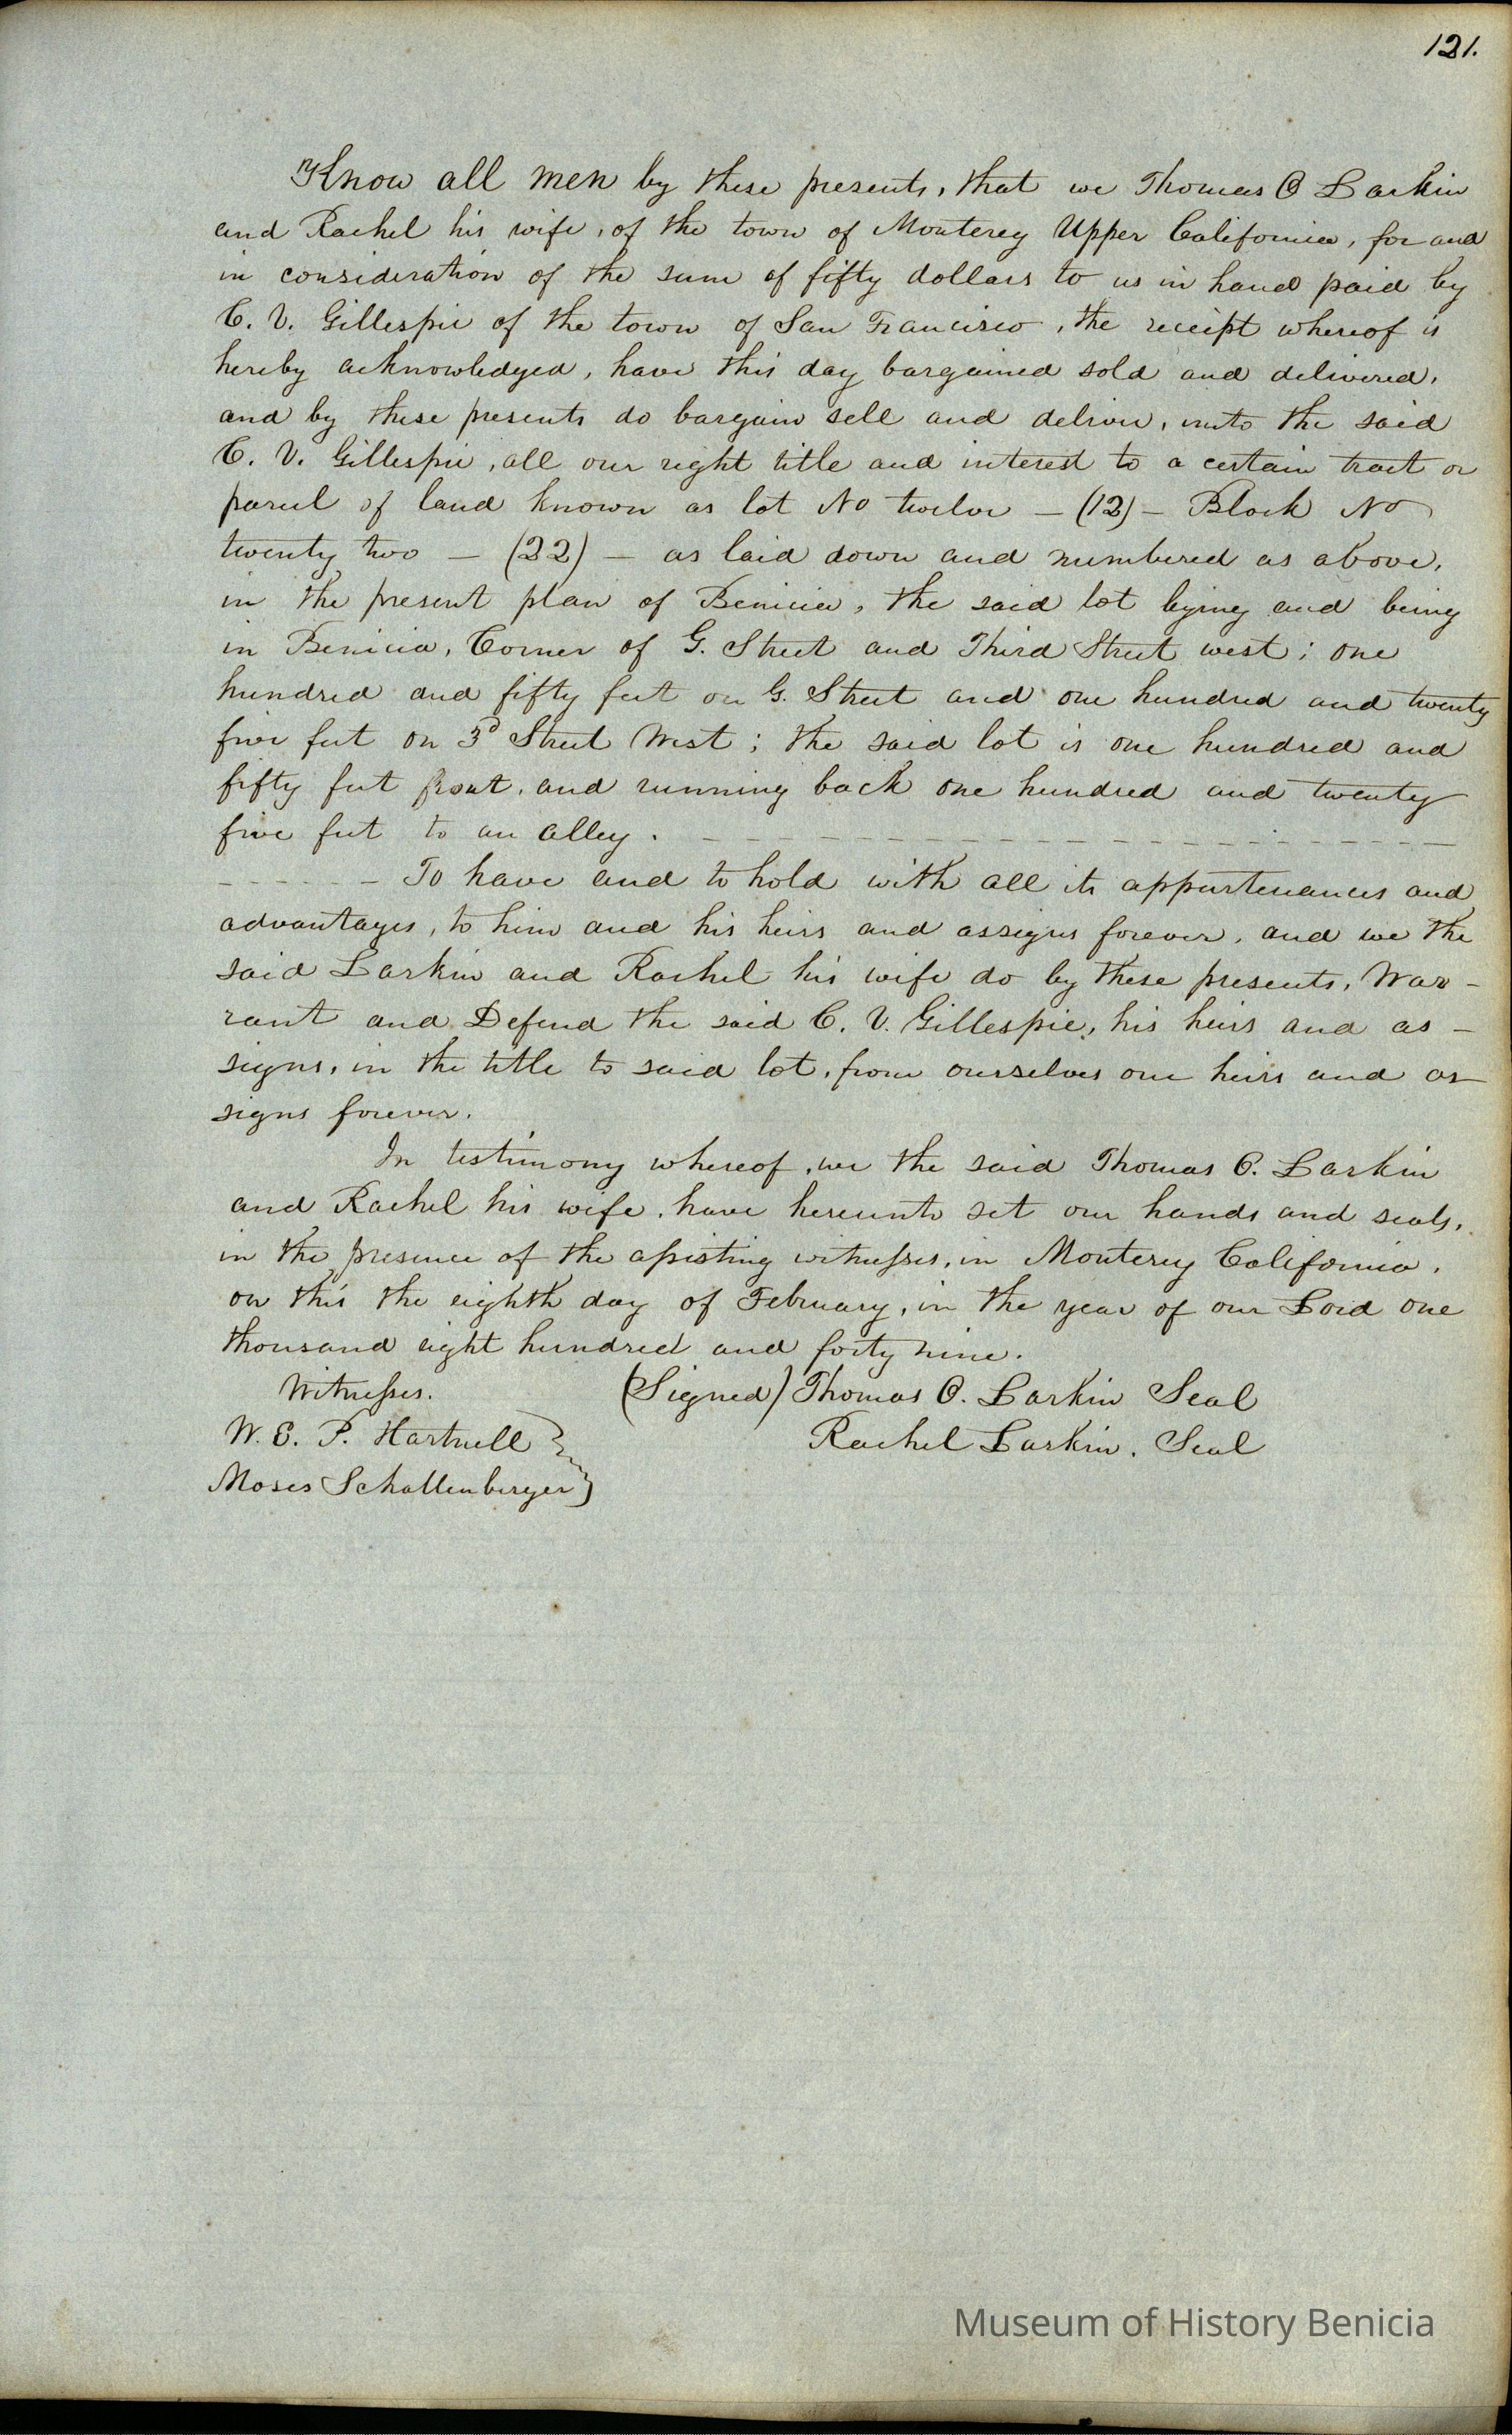 121.
Know all men by these presents, that we Thomas O Larkin
and Rachel his wife, of the town of Monterey Upper California, for and
in consideration of the sum of fifty dollars to us in hand paid by
C. V. Gillespie of the town of San Francisco, the receipt whereof is
hereby acknowledged, have this day bargained sold and delivered,
and by these presents do bargain sell and deliver, unto the said
C. V. Gillespie, all our right title and interest to a certain tract or
parcel of land known as lot No twelve – (12) – Block No
twenty two – (22) – as laid down and numbered as above,
in the present plan of Benicia, the said lot lying and being
in Benicia, Corner of G. Street and Third Street west; one
hundred and fifty feet on G. Street and one hundred and twenty
five feet on 3d Street West; the said lot is one hundred and
fifty feet front, and running back one hundred and twenty
five feet to an alley. - - - - - - - - - - - - - - - - - - - -
- - - - - - To have and to hold with all its appurtenances and
advantages, to him and his heirs and assigns forever, and we the
said Larkin and Rachel his wife do by these presents, War-
rant and Defend the said C. V. Gillespie, his heirs and as-
signs, in the title to said lot, from ourselves our heirs and as-
signs forever.
In testimony whereof, we the said Thomas O. Larkin
and Rachel his wife, have hereunto set our hands and seals,
in the presence of the assisting witnesses, in Monterey California,
on this the eighth day of February, in the year of our Lord one
thousand eight hundred and forty nine.
Witnesses. (Signed) Thomas O. Larkin Seal
W. E. P. Hartnell } Rachel Larkin. Seal
Moses Schallenberger }
Museum of History Benicia